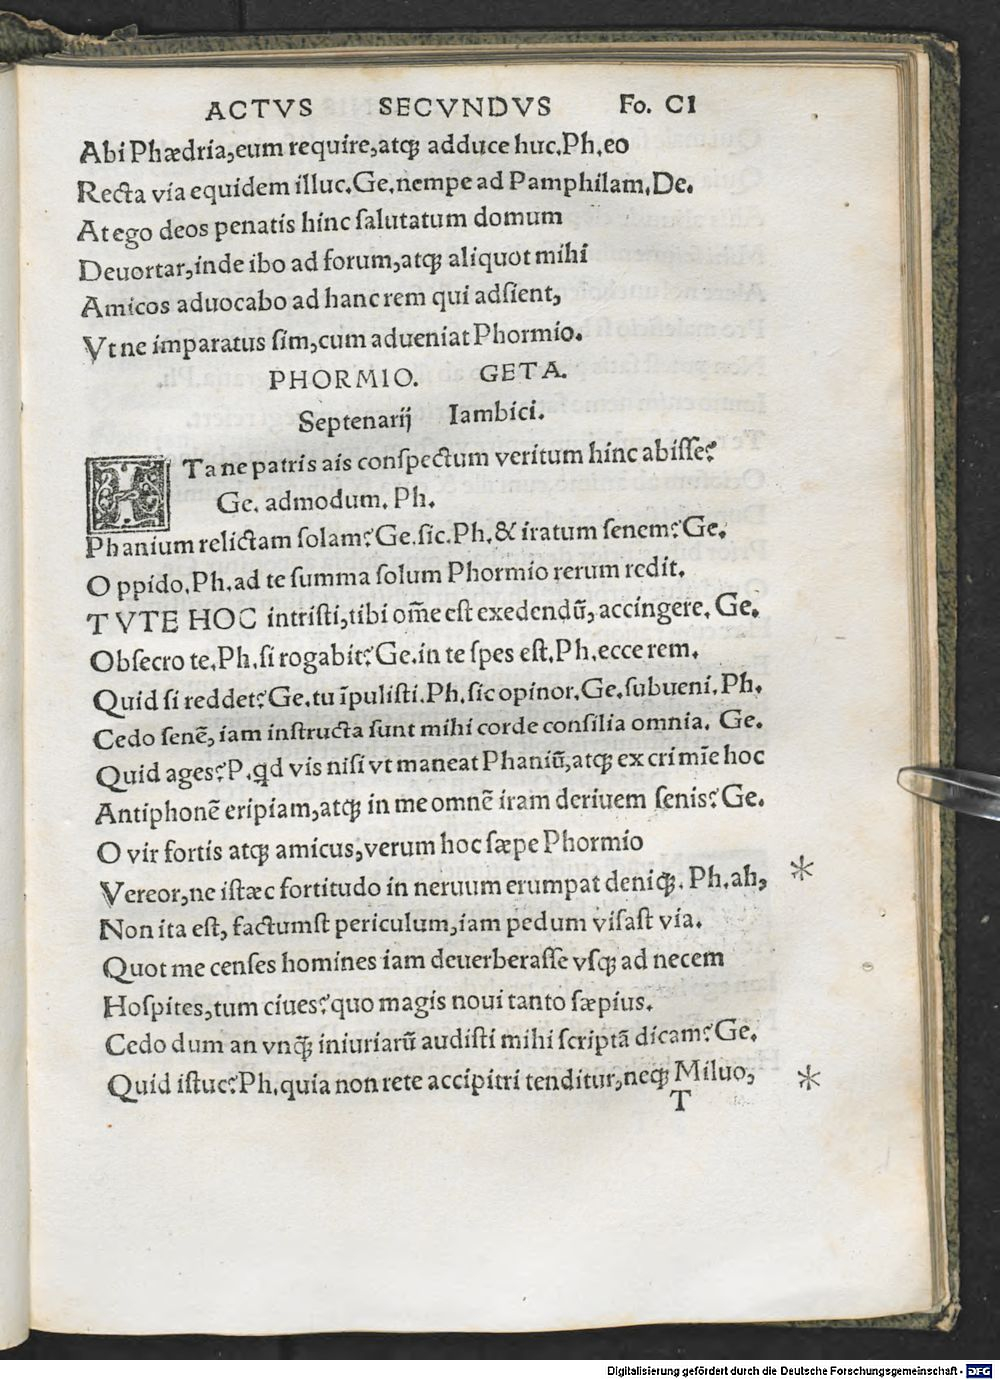 ACTVS SECVNDVS Fo. CI
Abi Phædria,eum require,atqꝫ adduce huc.Ph.eo
Recta via equidem illuc.Ge.nempe ad Pamphilam.De.
At ego deos penatis hinc ſalutatum domum
Deuortar,inde ibo ad forum,atqꝫ aliquot mihi
Amicos aduocabo ad hanc rem qui adſient,
Vt ne imparatus ſim,cum adueniat Phormio.
PHORMIO. GETA.
Septenarij Iambici.
ITa ne patris ais conſpectum veritum hinc abiſſe?
Ge. admodum. Ph.
Phanium relictam ſolam?Ge.ſic.Ph.& iratum ſenem?Ge.
Oppido.Ph.ad te ſumma ſolum Phormio rerum redit.
TVTE HOC intriſti,tibi om̄e eſt exedendū,accingere.Ge.
Obſecro te.Ph.ſi rogabit?Ge.in te ſpes eſt.Ph.ecce rem.
Quid ſi reddet?Ge.tu īpuliſti.Ph.ſic opinor.Ge.ſubueni.Ph.
Cedo ſenē,iam inſtructa ſunt mihi corde conſilia omnia. Ge.
Quid ages?P.qd vis niſi vt maneat Phaniū,atqꝫ ex crimīe hoc
Antiphonē eripiam,atqꝫ in me omnē iram deriuem ſenis?Ge.
O vir fortis atqꝫ amicus,verum hoc ſæpe Phormio
Vereor,ne iſtæc fortitudo in neruum erumpat deniqꝫ.Ph.ah, *
Non ita eſt, factumſt periculum,iam pedum viſaſt via.
Quot me cenſes homines iam deuerberaſſe vſqꝫ ad necem
Hoſpites,tum ciues?quo magis noui tanto ſæpius.
Cedo dum an vnqꝫ̄ iniuriarū audiſti mihi ſcriptā dicam?Ge.
Quid iſtuc?Ph.quia non rete accipitri tenditur,neqꝫ Miluo, *
T
Digitalisierung gefördert durch die Deutsche Forschungsgemeinschaft - DFG